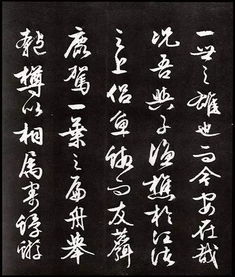 一世之雄也而今安在哉
况吾與子漁樵於江渚
之上侣魚蝦而友麋
鹿駕一葉之扁舟舉
匏樽以相属寄蜉蝣